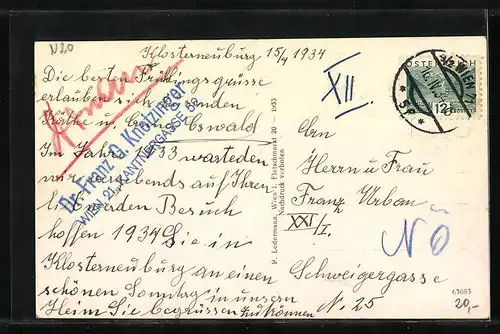 N20
Klosterneuburg 15/4 1934
Die besten Frühlingsgrüsse
erlauben sich zu senden
Käthe u. Oswald
Im Jahre 1933 warteden
wir vergebends auf Ihren
werden Besuch
hoffen 1934 Sie in
Klosterneuburg an einen
schönen Sonntag in unsern
Heim Sie begrüssen zu können
Dr. Franz O. Knotzinger
WIEN 21. KANTNERGASSE 52
P. Ledermann, Wien I, Fleischmarkt 20 - 1933
Nachdruck verboten
XII.
ÖSTERREICH
WIEN
12g
An
Herrn u Frau
Franz Urban
XXI/I.
NÖ
Schweigergasse
N. 25
63085
20,-